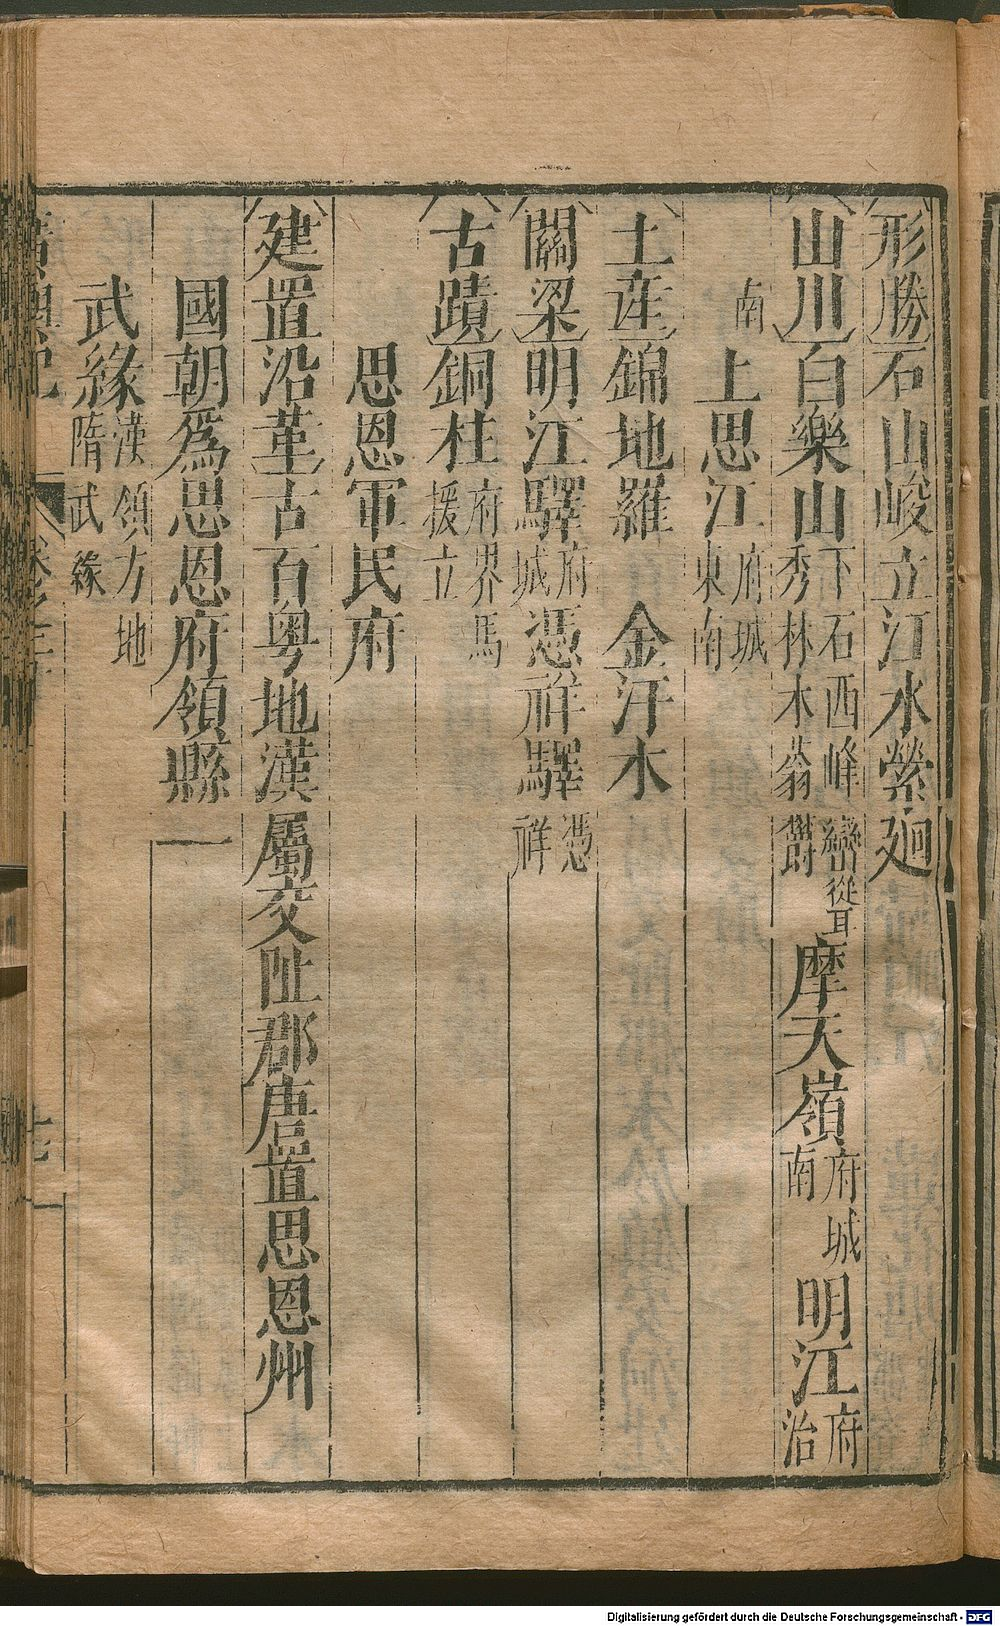 形勝石山峻立江水縈廻
山川白樂山下石西峰巒從耳秀林木蓊欝摩天嶺府城南明江府治
南上思江府城東南
土産錦地羅 金汗木
關梁明江驛府城憑祥驛憑祥
古蹟銅柱府界馬援立
思恩軍民府
建置沿革古百粤地漢屬交阯郡唐置思恩州
國朝爲思恩府領縣一
武緣漢領方地隋武緣
廣輿記
Digitalisierung gefördert durch die Deutsche Forschungsgemeinschaft - DFG